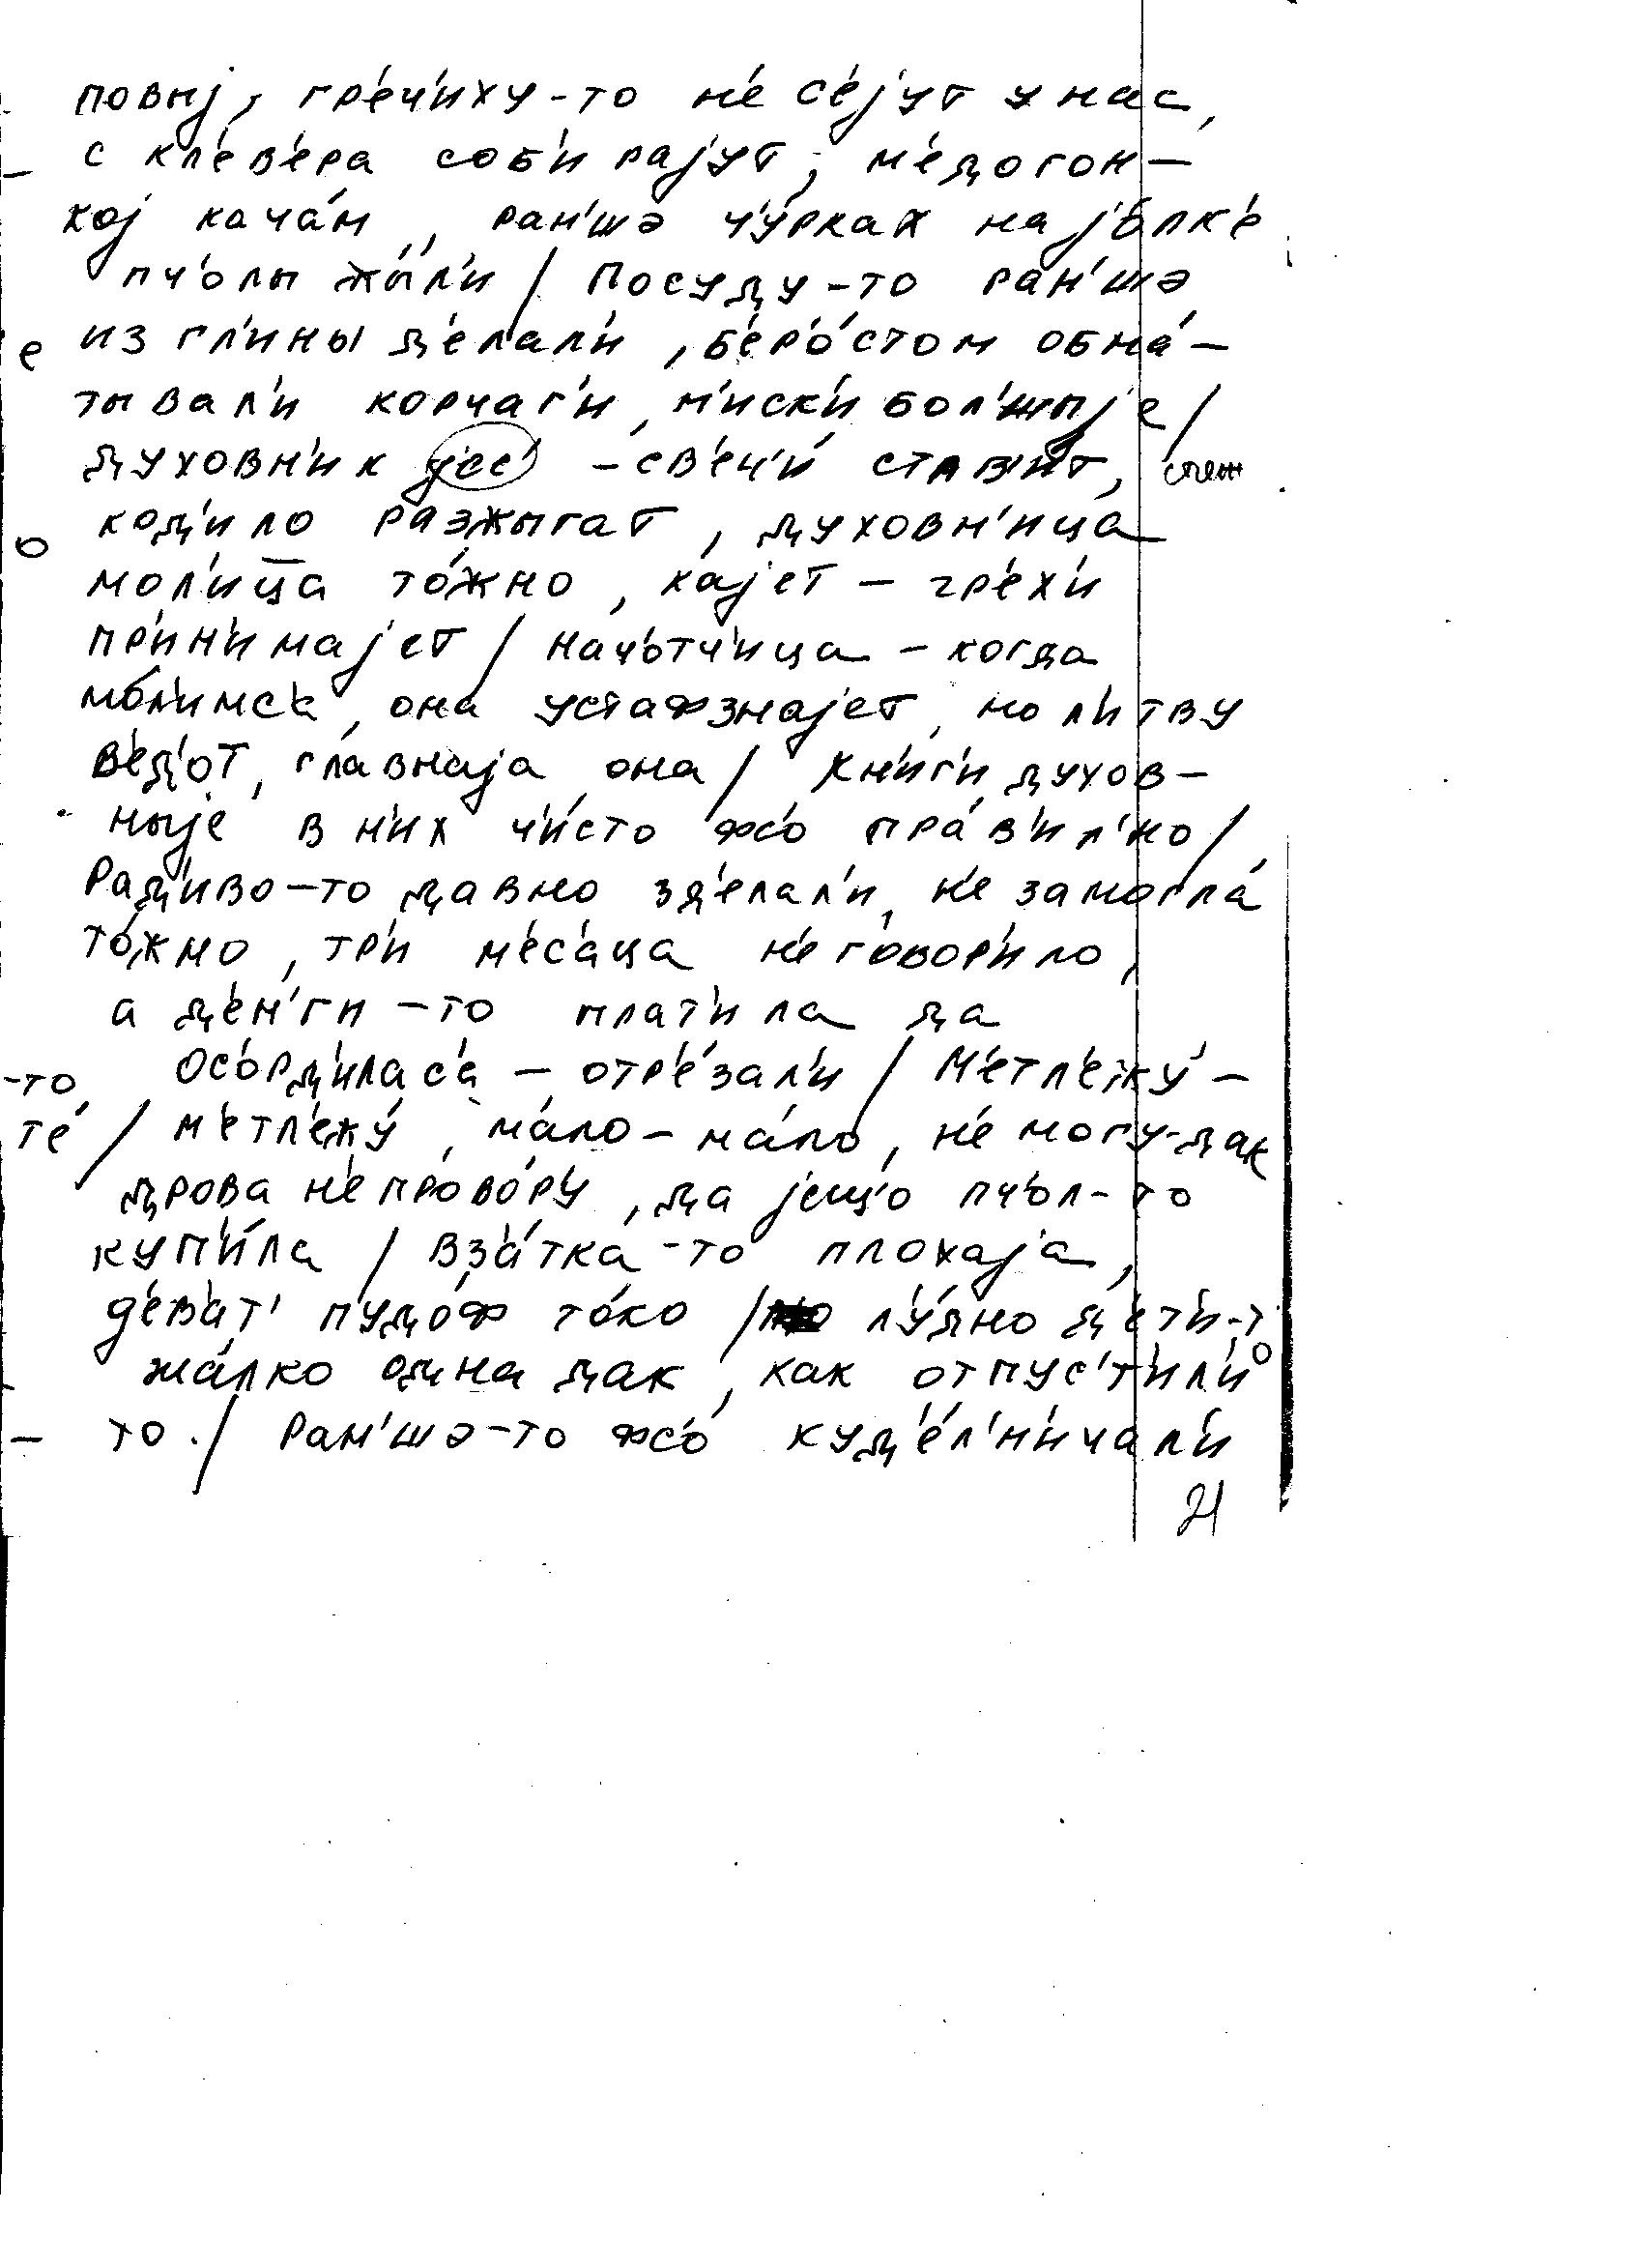 повыј, гр'еч'иху-то н'е с'ејут у нас,
с кл'ев'ера соб'ирајут, м'едогон-
кој кача́м, ран'шэ ч'у́рках на јо́лк'е
пч'олы жы́л'и / Посуду-то ран'шэ
е из гл'ины д'елал'и, б'еро́стом обма́-
тывал'и корчаг'и, м'иск'и бол'шыје /
духовн'ик јес' - св'еч'и́ став'ит,
о код'ило разжыгат, духовн'ица
мол'ица то́жно, кајет - гр'ех'и
пр'ин'имајет / нач'отч'ица - когда
мо́л'имс'а, она устаф знајет, мол'итву
в'ед'от, главнаја она / кн'иг'и духов-
ныје в н'их ч'и́сто фс'о пра́в'ил'но /
Рад'иво-то давно зд'елал'и, н'е замогла́
то́жно, тр'и м'ес'аца н'е говор'ило,
а д'ен'ги-то плат'ила да
-то, ос'орд'илас'а - отр'е́зал'и / М'етл'ежу́-
те́ / м'етл'ежу́, ма́ло-ма́ло, н'е могу-дак
дрова н'е прово́р'у, да јещ'о пч'ол-то
куп'и́ла / вз'а́тка-то плохаја,
д'ев'ат' пудо́ф то́ко / лу́дно д'ет'и-то
жа́лко одна дак, как отпус'т'ил'и
- то / Ран'шэ-то фс'о куд'е́л'н'ичал'и
21